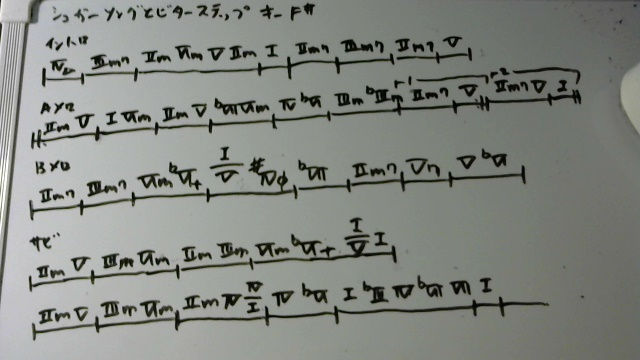 シュガーソングとビターステップ キード#
イントロ
Ⅳ Ⅲm7 Ⅱm Ⅵm Ⅴ Ⅱm Ⅰ Ⅱm7 Ⅲm7 Ⅱm7 Ⅴ
Aメロ
Ⅱm Ⅴ Ⅰ Ⅵm Ⅱm Ⅴ Ⅵm Ⅳ Ⅲm Ⅱm7 Ⅴ Ⅱm7 Ⅴ Ⅰ
Bメロ
Ⅱm7 Ⅲm7 Ⅵm Ⅰ/Ⅴ #Ⅳφ Ⅱm7 Ⅴ7 Ⅴ
サビ
Ⅱm Ⅴ Ⅲm Ⅵm Ⅱm Ⅲm Ⅵm Ⅰ/Ⅴ Ⅰ
Ⅱm Ⅴ Ⅲm Ⅵm Ⅱm Ⅳ Ⅳ/Ⅰ Ⅳ Ⅰ bⅢ Ⅳ Ⅰ